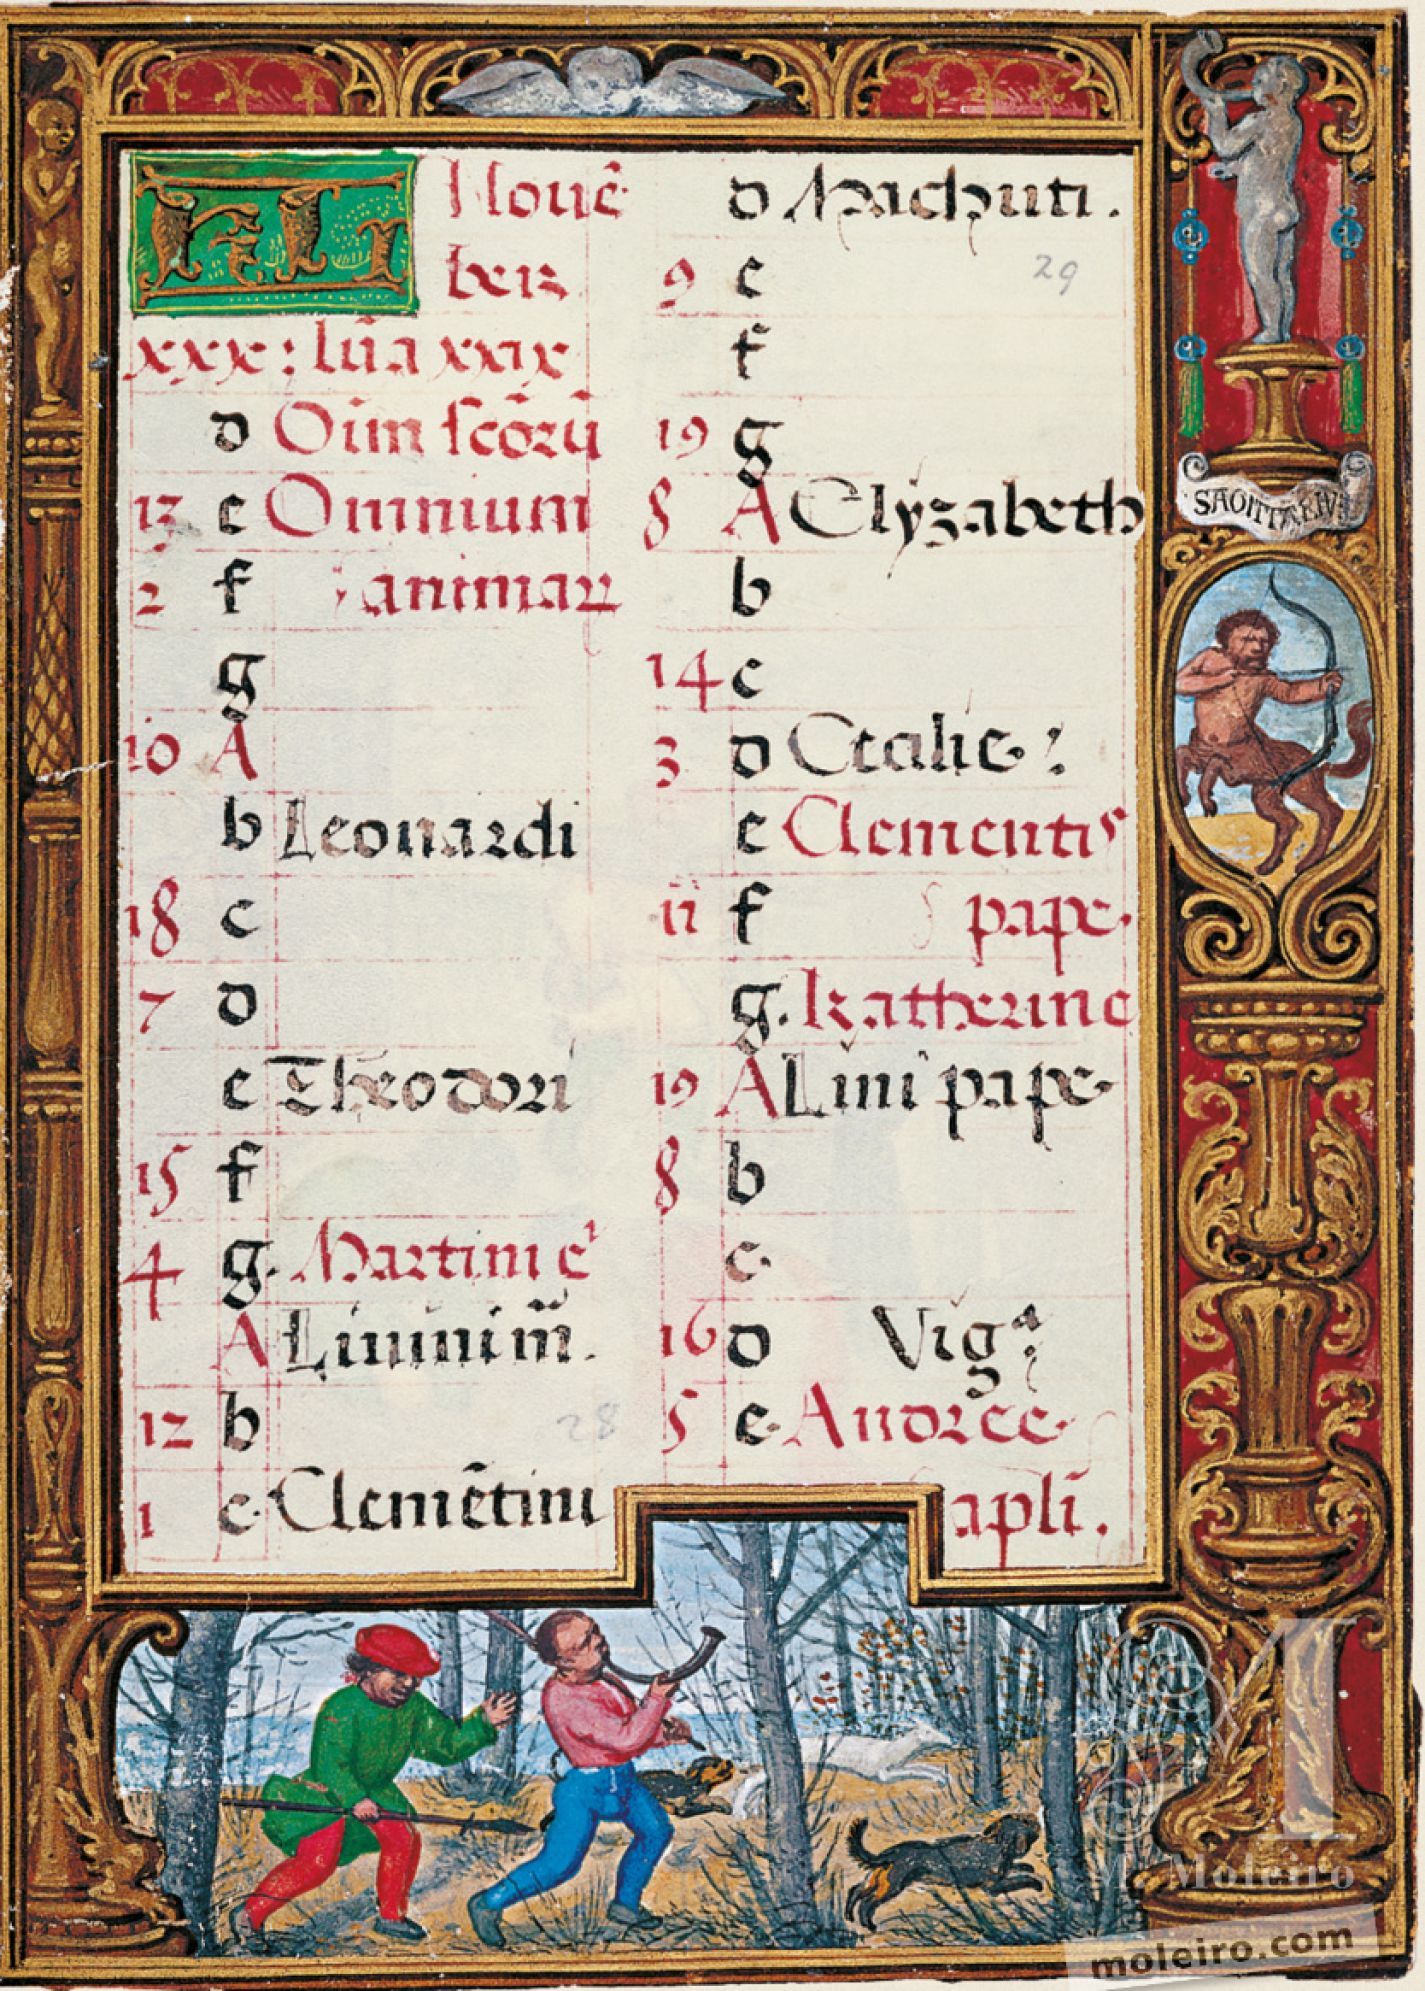 KL Nouē
ber
xxx: lūa xxix
d Oīm scōrū
13 e Omnium
2 f animaꝝ
g
10 A
b Leonardi
18 c
7 d
e Theodori
15 f
4 g. Martini e
A Liuini m̄.
12 b
1 c. Clemētini
d Machuti.
9 e
f
19 g
8 A Elyzabeth
b
14 c
3 d Cecilie.
e Clementis
11 f pape.
g. Katherine
19 A Lini pape.
8 b
c.
16 d Vigᵃ
5 e. Andree.
apli.
29
28
SAGITTARIV
M. Moleiro
moleiro.com